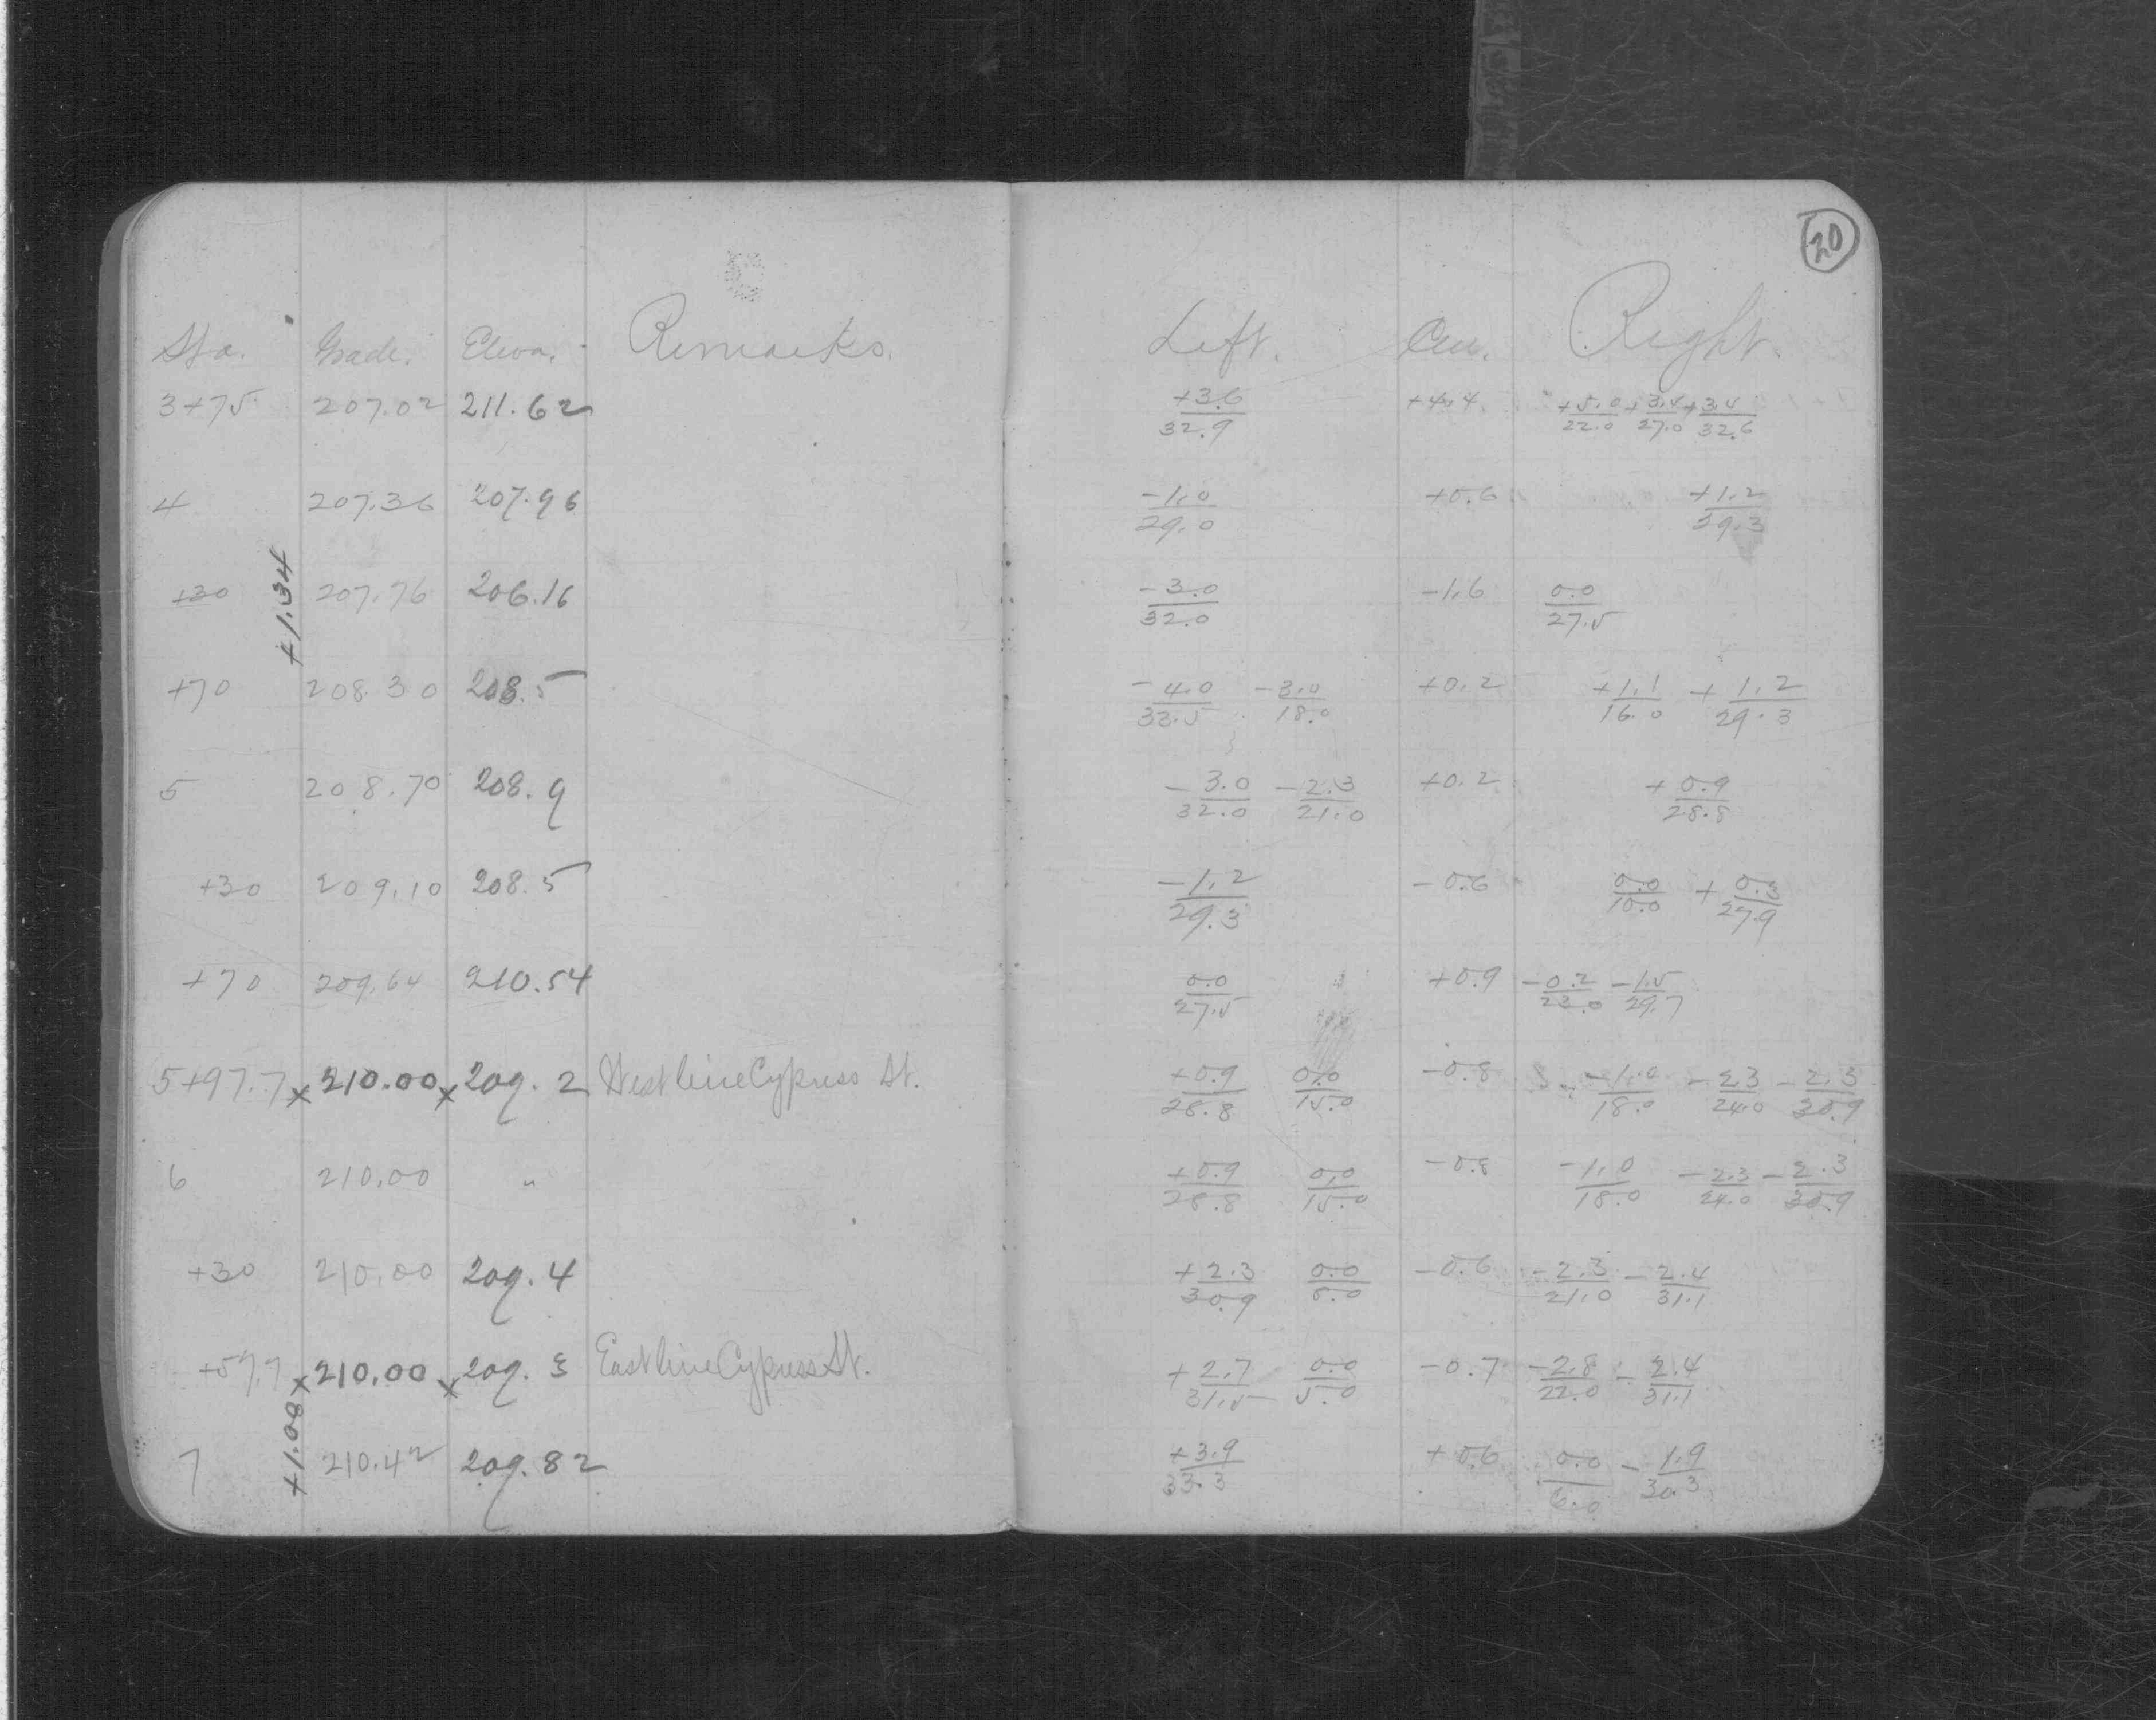 20
Sta. Grade. Eleva. Remarks. Left. Cen. Right.
3+75 207.02 211.62 +3.6/32.9 +4.4 +5.0/22.0 +3.4/27.0 +3.4/32.6
4 207.36 207.96 -1.0/29.0 +0.6 +1.2/29.3
+1.34
+30 207.76 206.16 -3.0/32.0 -1.6 0.0/27.5
+70 208.30 208.5 -4.0/33.5 -3.0/18.0 +0.2 +1.1/16.0 +1.2/29.3
5 208.70 208.9 -3.0/32.0 -2.3/21.0 +0.2 +0.9/28.8
+30 209.10 208.5 -1.2/29.3 -0.6 0.0/10.0 +0.3/27.9
+70 209.64 210.54 0.0/27.5 +0.9 -0.2/23.0 -1.5/29.7
5+97.7 x 210.00 x 209.2 West line Cypress St. +0.9/28.8 0.0/15.0 -0.8 -1.0/18.0 -2.3/24.0 -2.3/30.9
6 210.00 " +0.9/28.8 0.0/15.0 -0.8 -1.0/18.0 -2.3/24.0 -2.3/30.9
+30 210.00 209.4 +2.3/30.9 0.0/8.0 -0.6 -2.3/21.0 -2.4/31.1
+57.7 x 210.00 x 209.3 East line Cypress St. +2.7/31.5 0.0/5.0 -0.7 -2.8/22.0 -2.4/31.1
+1.00
7 210.42 209.82 +3.9/33.3 +0.6 0.0/6.0 -1.9/30.3